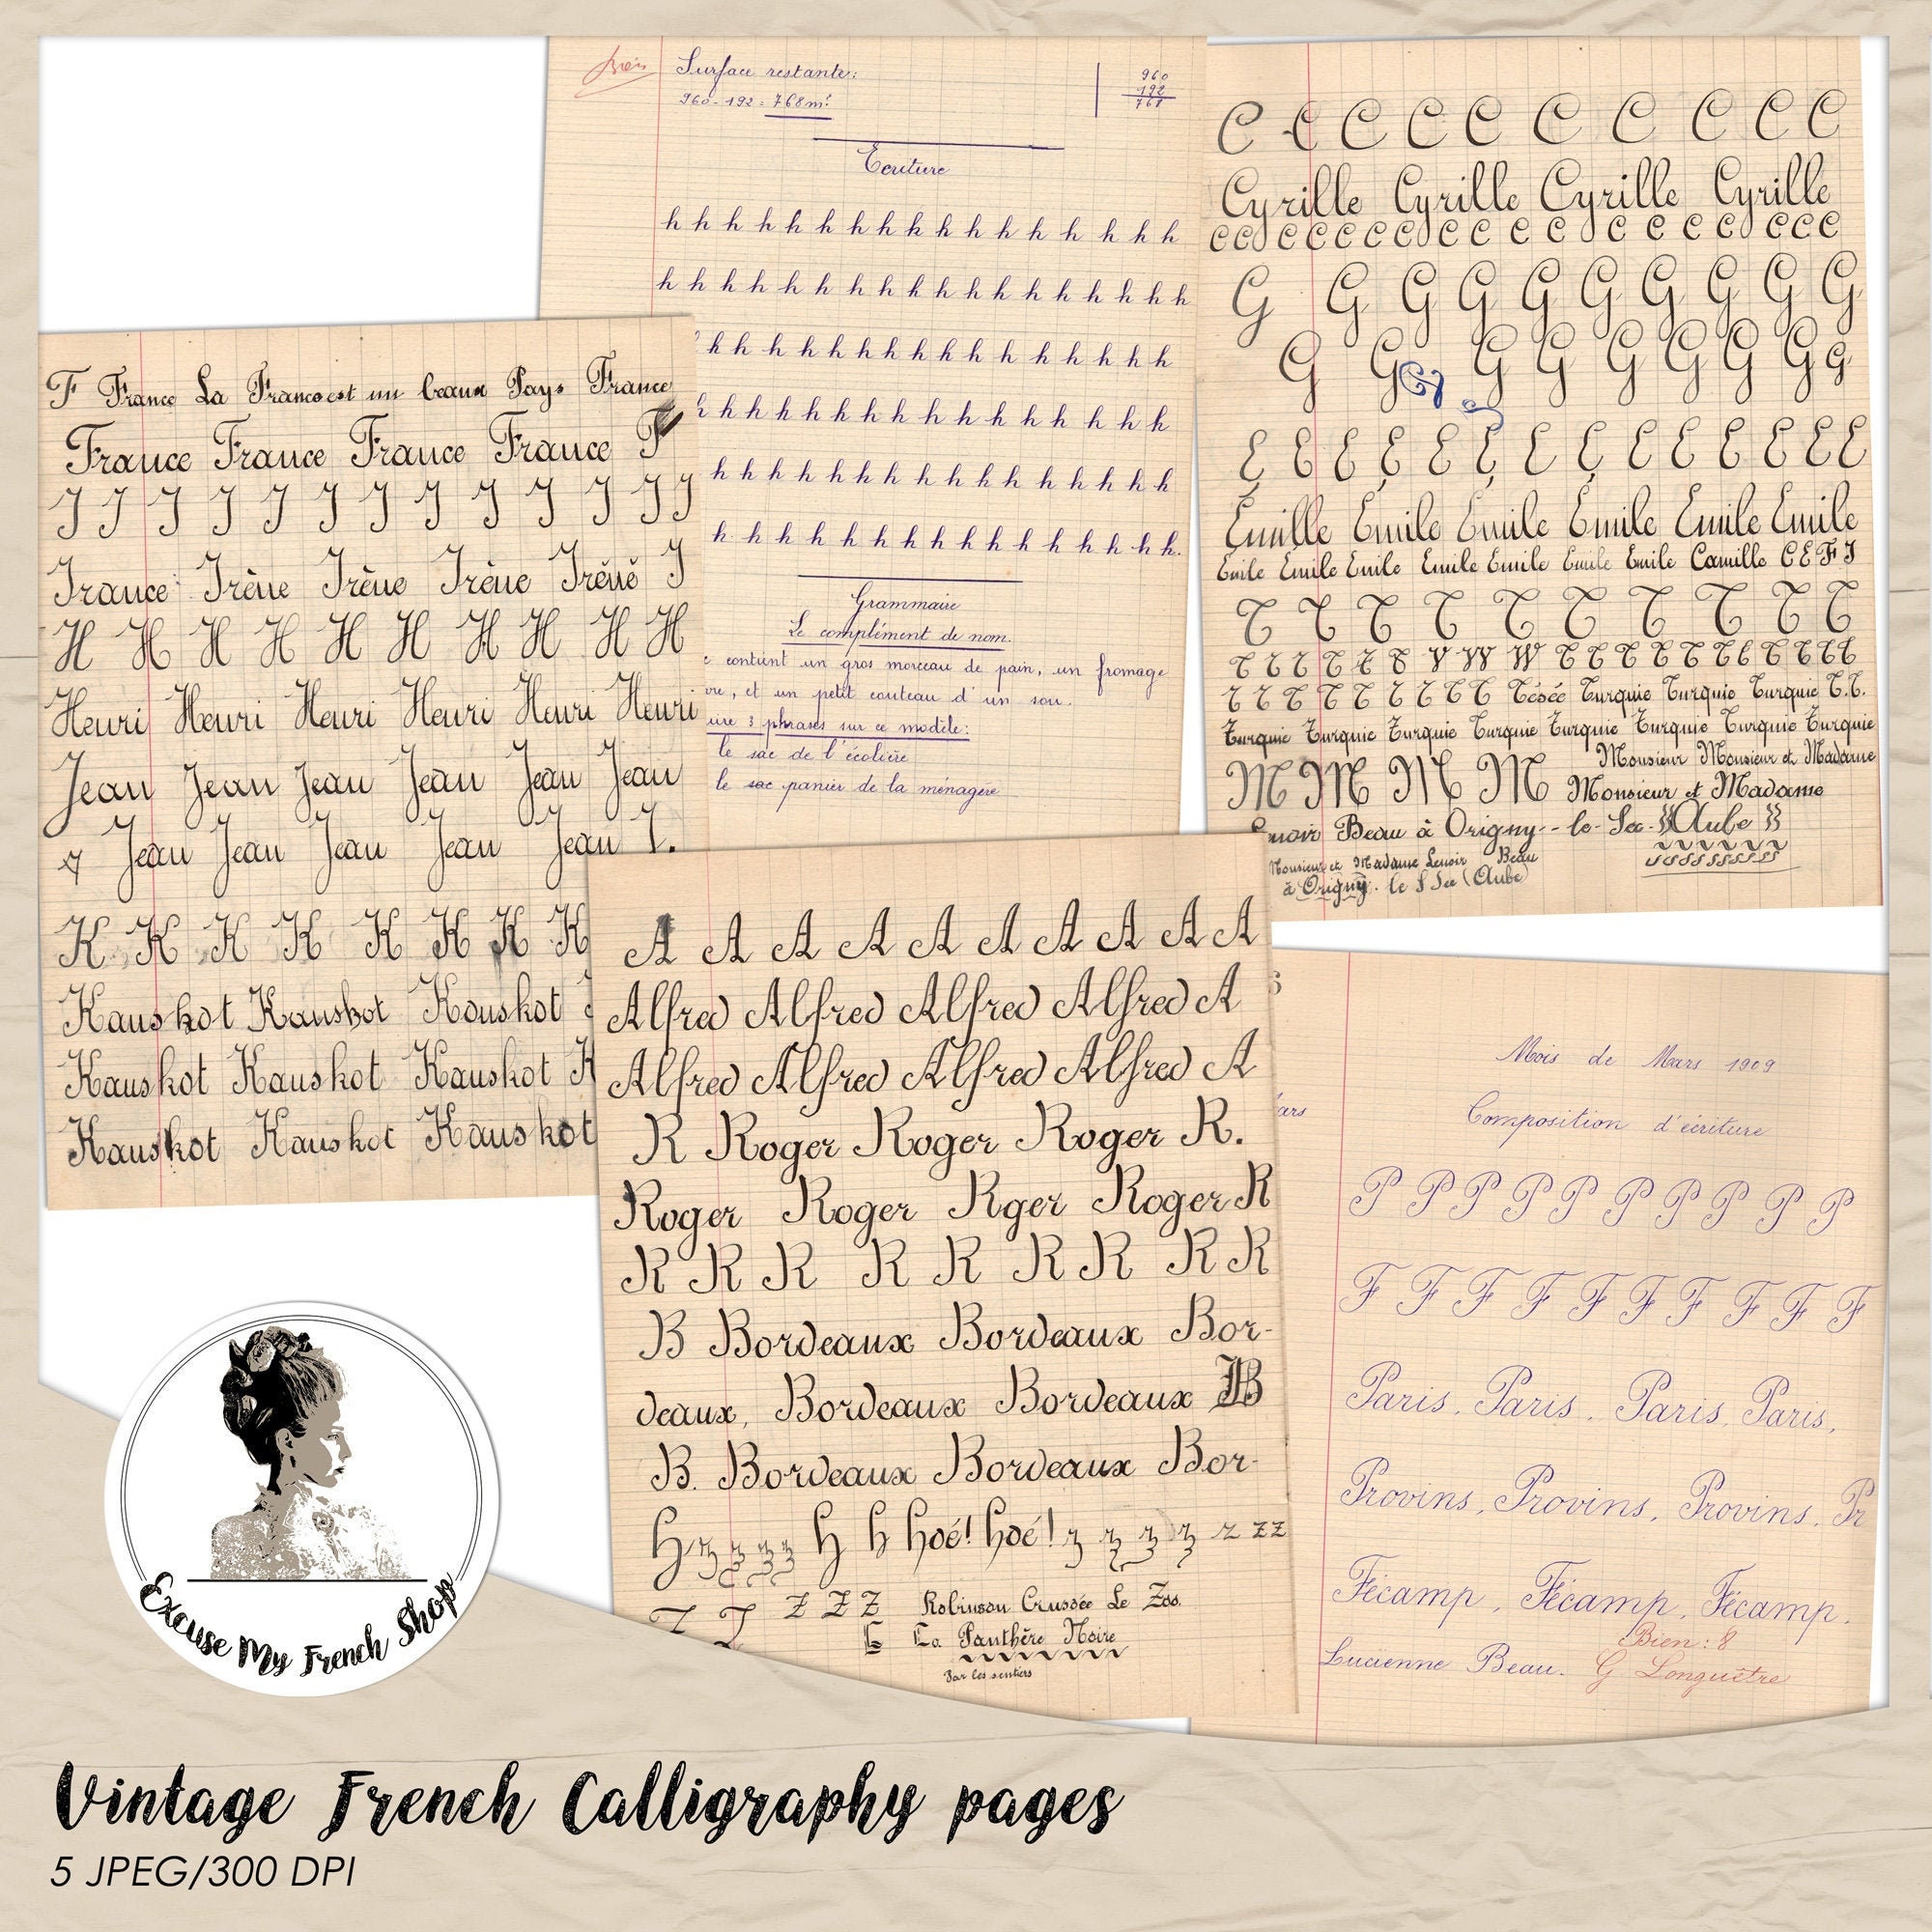 Bien
Surface restante:
960 - 192 = 768 m²
960
192
768
Ecriture
h h h h h h h h h h h h h h h h h
h h h h h h h h h h h h h h h h h
h h h h h h h h h h h h h h h h
h h h h h h h h h h h h h h h h
h h h h h h h h h h h h h h h h
h h h h h h h h h h h h h h h h.
Grammaire
Le complément de nom.
contient un gros morceau de pain, un fromage
et un petit couteau d'un sou.
3 phrases sur ce modèle:
le sac de l'écolière
le sac panier de la ménagère
C C C C C C C C C C
Cyrille Cyrille Cyrille Cyrille
G G G G G G G G G G
G G G G G G G G g
E E E E E E E E E E E E E
Émille Emile Emile Emile Emile Emile
Emile Emile Emile Emile Emile Emile Emile Camille C E F I
T T T T T T T T T T
Turquie Turquie Turquie T.T.
Turquie Turquie Turquie Turquie Turquie Turquie Turquie Turquie
M M M M Monsieur Monsieur et Madame
Monsieur et Madame
Lenoir Beau à Origny - le - Sec Aube
Monsieur et Madame Lenoir Beau
à Origny. le S Sec (Aube)
F France La France est un beaux Pays France
France France France France F
I I I I I I I I I I I I
Irance Irène Irène Irène Irène I
H H H H H H H H H H
Henri Henri Henri Henri Henri Henri
Jean Jean Jean Jean Jean Jean
Jean Jean Jean Jean Jean I.
K K K K K K K K
Kauskot Kauskot Kauskot
Kauskot Kauskot Kauskot K
Kauskot Kauskot Kauskot
A A A A A A A A A A
Alfred Alfred Alfred Alfred A
Alfred Alfred Alfred Alfred A
R Roger Roger Roger R.
Roger Roger Rger Roger R
R R R R R R R R R
B Bordeaux Bordeaux Bor-
deaux, Bordeaux Bordeaux B
B. Bordeaux Bordeaux Bor-
h h hoé! hoé! z z z z z z z
Z Z Z Robinson Crusoée Le Zoo.
La Panthère Noire
Par les sentiers
Mois de Mars 1909
Composition d'écriture
P P P P P P P P P P
F F F F F F F F F F
Paris, Paris, Paris, Paris,
Provins, Provins, Provins, Pr
Fécamp, Fécamp, Fécamp.
Bien: 8
Lucienne Beau. G Longuêtre
Excuse My French Shop
Vintage French Calligraphy pages
5 JPEG/300 DPI